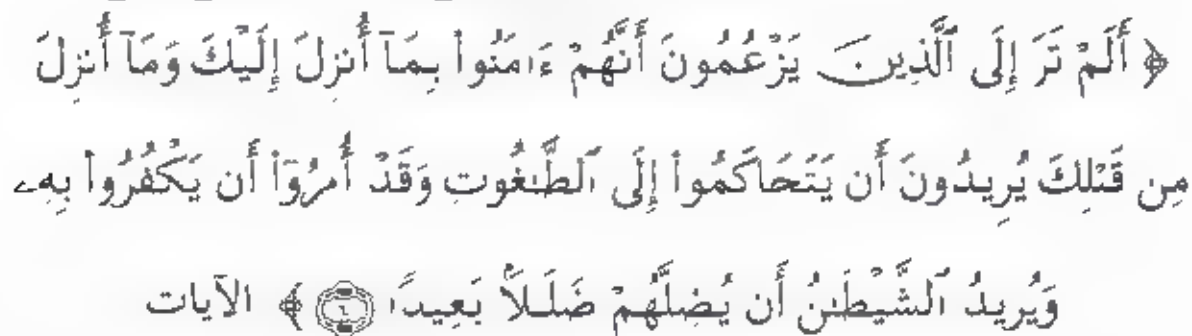 ﴿ أَلَمْ تَرَ إِلَى ٱلَّذِينَ يَزْعُمُونَ أَنَّهُمْ ءَامَنُوا۟ بِمَآ أُنزِلَ إِلَيْكَ وَمَآ أُنزِلَ
مِن قَبْلِكَ يُرِيدُونَ أَن يَتَحَاكَمُوٓا۟ إِلَى ٱلطَّٰغُوتِ وَقَدْ أُمِرُوٓا۟ أَن يَكْفُرُوا۟ بِهِۦ
وَيُرِيدُ ٱلشَّيْطَٰنُ أَن يُضِلَّهُمْ ضَلَٰلًۢا بَعِيدًا ﴾ الآيات